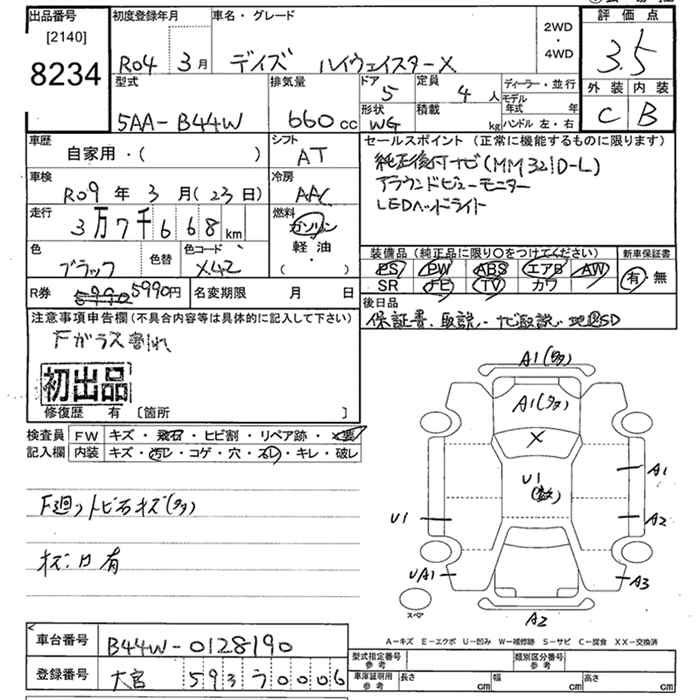 出品番号
[2140]
8234
初度登録年月
R04 3月
車名・グレード
デイズ ハイウェイスターX
2WD
・
4WD
評価点
3.5
外装 内装
C B
型式
5AA-B44W
排気量
660cc
ドア
5
定員
4人
形状
WG
積載
kg
ディーラー・並行
モデル年式 年
ハンドル 左・右
車歴
自家用・( )
シフト
AT
車検
R09年3月(23日)
冷房
AAC
走行
3万7千668km
燃料
ガソリン
軽油・
( )
色
ブラック
色替
色コード
X42
セールスポイント(正常に機能するものに限ります)
純正後付ナビ(MM321D-L)
アラウンドビューモニター
LEDヘッドライト
装備品(純正品に限り○をつけてください)
PS PW ABS エアB AW
SR TV カワ
新車保証書
有・無
R券 5990 5990円
名変期限 月 日
後日品
保証書、取説、ナビ取説、地図SD
注意事項申告欄(不具合内容等は具体的に記入して下さい)
Fガラス割れ
初出品
修復歴 有 〔箇所 〕
検査員
記入欄
FW キズ・飛石・ヒビ割・リペア跡・×要
内装 キズ・汚レ・コゲ・穴・スレ・キレ・破レ
F廻りトビ石キズ(多)
キズ、凹有
A1(多)
A1(多)
X
U1
(数)
A1
A2
U1
UA1
A3
スペア
A2
A-キズ E-エクボ U-凹み W-補修跡 S-サビ C-腐食 XX-交換済
車台番号
B44W-0128190
登録番号
大宮 593 う 0006
型式指定番号
参考
類別区分番号
参考
車庫証明用
参考
長さ cm
幅 cm
高さ cm